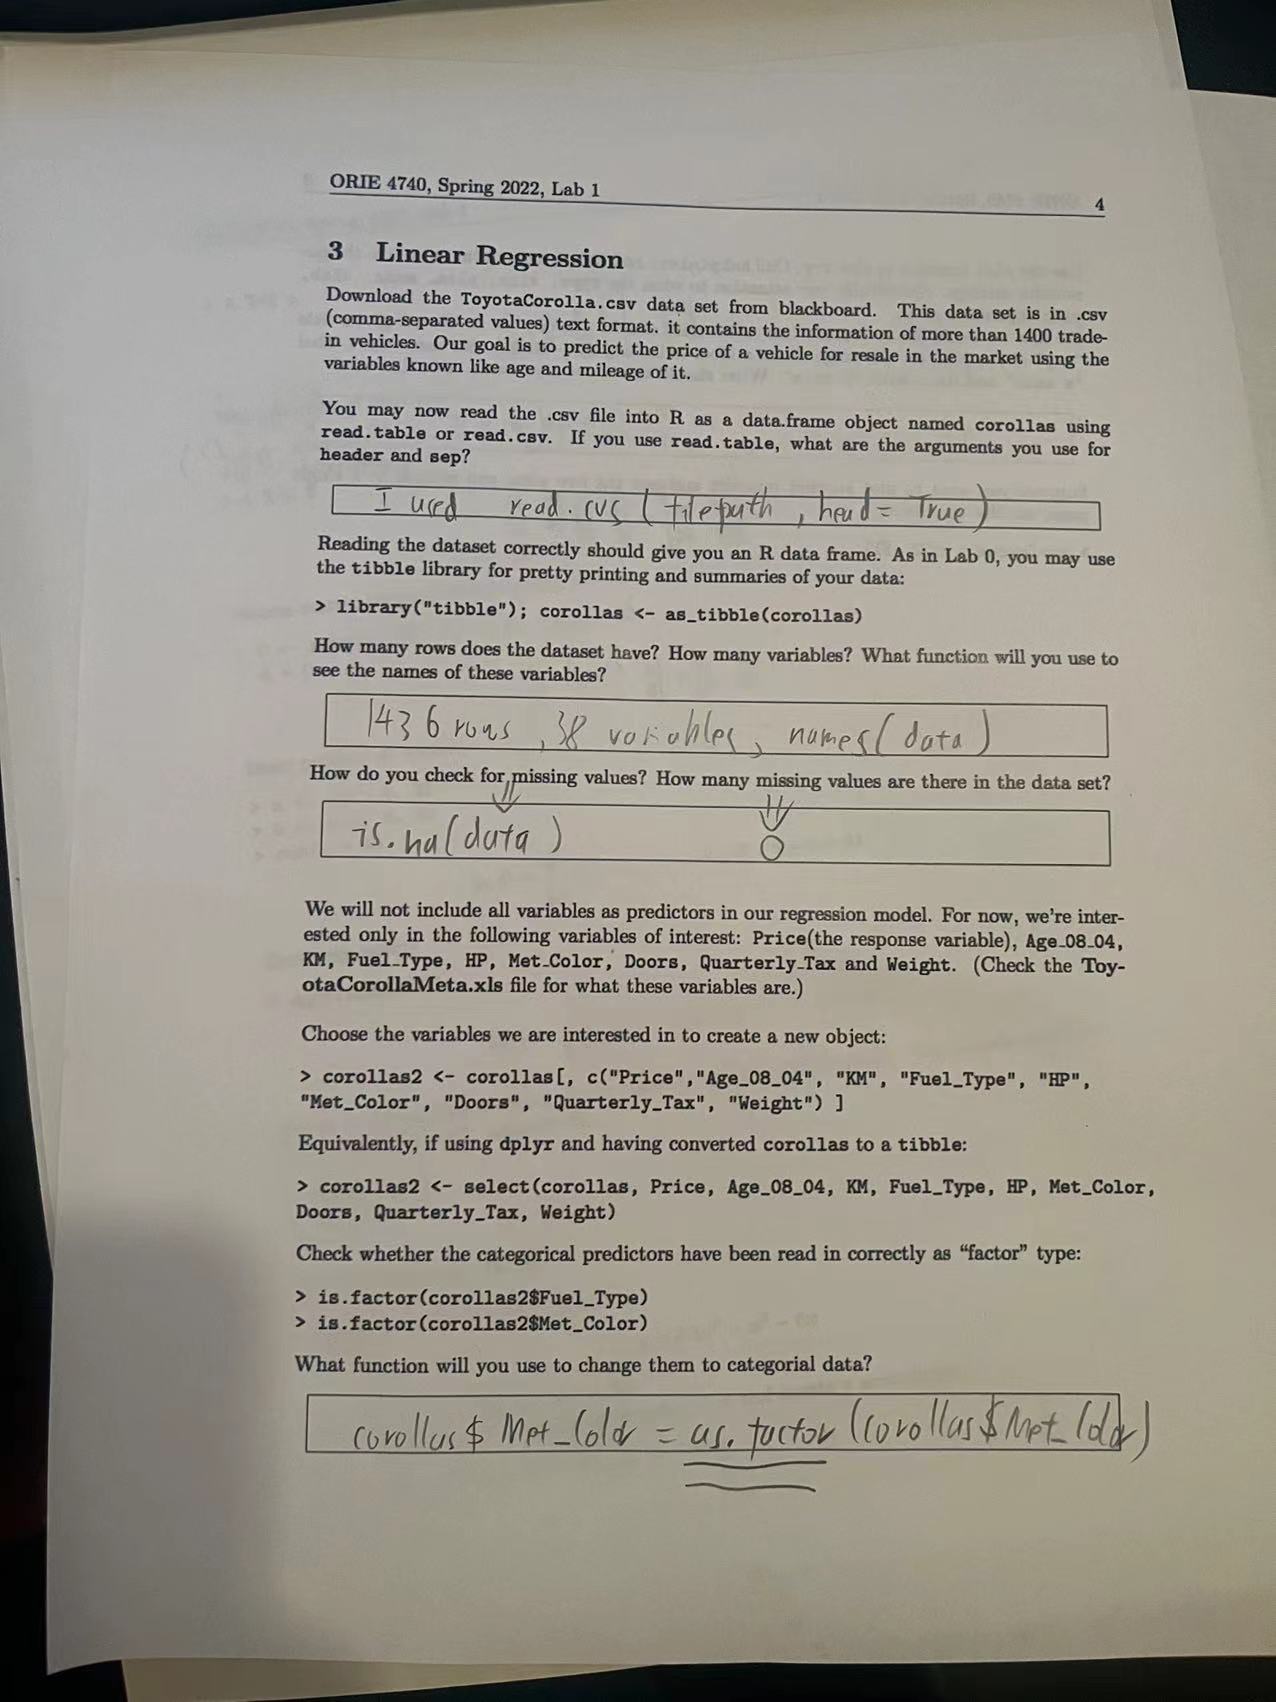 ORIE 4740, Spring 2022, Lab 1
4
3 Linear Regression
Download the ToyotaCorolla.csv data set from blackboard. This data set is in .csv
(comma-separated values) text format. it contains the information of more than 1400 trade-
in vehicles. Our goal is to predict the price of a vehicle for resale in the market using the
variables known like age and mileage of it.
You may now read the .csv file into R as a data.frame object named corollas using
read.table or read.csv. If you use read.table, what are the arguments you use for
header and sep?
I used read.cvs (filepath, head = True)
Reading the dataset correctly should give you an R data frame. As in Lab 0, you may use
the tibble library for pretty printing and summaries of your data:
> library("tibble"); corollas <- as_tibble(corollas)
How many rows does the dataset have? How many variables? What function will you use to
see the names of these variables?
1436 rows, 38 variables, names(data)
How do you check for missing values? How many missing values are there in the data set?
is.na(data) 0
We will not include all variables as predictors in our regression model. For now, we're inter-
ested only in the following variables of interest: Price(the response variable), Age_08_04,
KM, Fuel_Type, HP, Met_Color, Doors, Quarterly_Tax and Weight. (Check the Toy-
otaCorollaMeta.xls file for what these variables are.)
Choose the variables we are interested in to create a new object:
> corollas2 <- corollas[, c("Price","Age_08_04", "KM", "Fuel_Type", "HP",
"Met_Color", "Doors", "Quarterly_Tax", "Weight") ]
Equivalently, if using dplyr and having converted corollas to a tibble:
> corollas2 <- select(corollas, Price, Age_08_04, KM, Fuel_Type, HP, Met_Color,
Doors, Quarterly_Tax, Weight)
Check whether the categorical predictors have been read in correctly as “factor” type:
> is.factor(corollas2$Fuel_Type)
> is.factor(corollas2$Met_Color)
What function will you use to change them to categorial data?
corollas$Met_Color = as.factor(corollas$Met_Color)